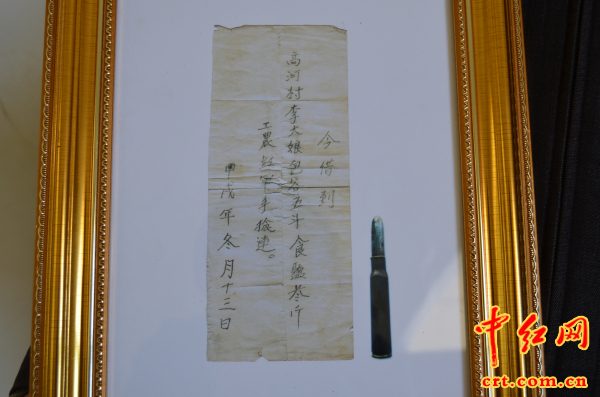 今借到
高河村李大娘包谷五斗食盐叁斤
工農红軍手槍连。
甲戌年冬月十三日
中红网
crt.com.cn